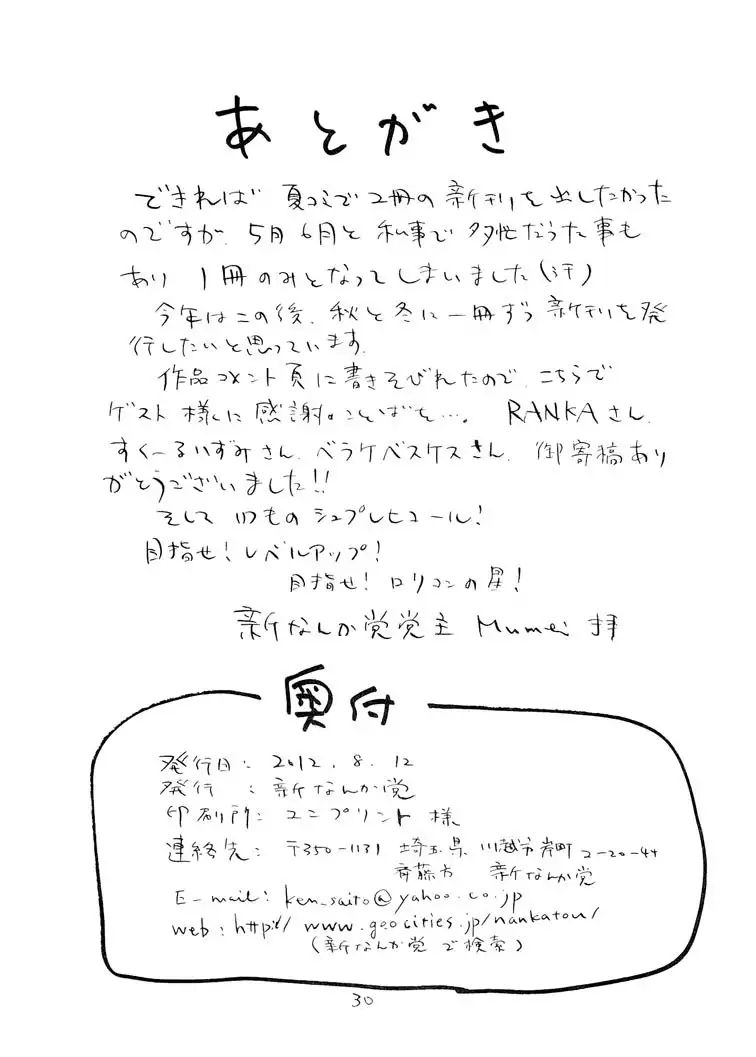 あとがき
できれば 夏コミで2冊の新刊を出したかった
のですが、5月6月と私事で多忙だった事も
あり 1冊のみとなってしまいました(汗)
今年はこの後、秋と冬に一冊ずつ新刊を発
行したいと思っています。
作品コメント頁に書きそびれたので、こちらで
ゲスト様に感謝のことばを…。 RANKAさん、
すくーるいずみさん、ベラケベスケスさん、御寄稿あり
がとうございました!!
そして いつもの シュプレヒコール!
目指せ!レベルアップ!
目指せ!ロリコンの星!
新なんか党党主 Mumei 拝
奥付
発行日: 2012.8.12
発行 : 新なんか党
印刷所: ユニプリント 様
連絡先: 〒350-1131 埼玉県 川越市岸町2-20-44
斉藤方 新なんか党
E-mail: ken_saito@yahoo.co.jp
web: http://www.geocities.jp/nankatou/
(新なんか党 で検索)
30